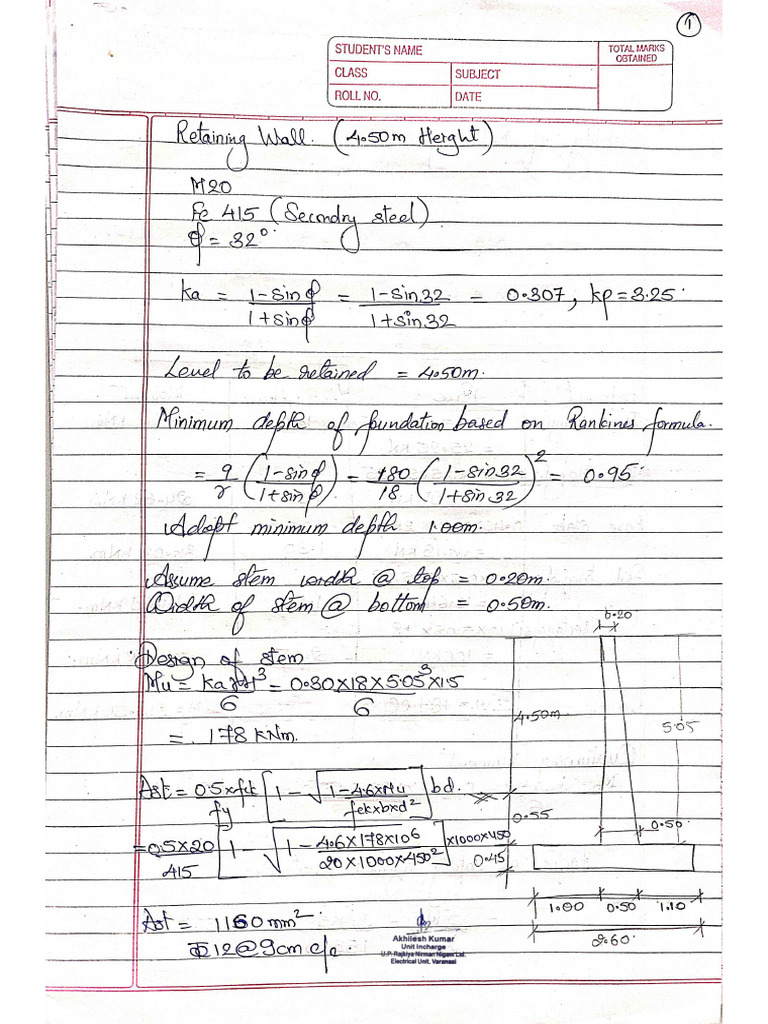 1
STUDENT'S NAME
TOTAL MARKS OBTAINED
CLASS
SUBJECT
ROLL NO.
DATE
Retaining Wall. (4.50m Height)
M20
Fe 415 (Secondry steel)
φ = 32°
ka = 1-sinφ / 1+sinφ = 1-sin32 / 1+sin32 = 0.307, kp=3.25
Level to be retained = 4.50m.
Minimum depth of foundation based on Rankines formula.
= q/r (1-sinφ / 1+sinφ) = 180/18 (1-sin32 / 1+sin32)² = 0.95
Adopt minimum depth 1.00m.
Assume stem width @ top = 0.20m.
Width of stem @ bottom = 0.50m.
0.20
Design of stem
Mu = ka γH³ / 6 = 0.30×18×5.05³×1.5 / 6
4.50m
5.05
= 178 KNm.
Ast = 0.5×fck / fy [1 - √(1-4.6×Mu / fck×b×d²)] bd.
0.55
0.50
= 0.5×20 / 415 [1 - √(1-4.6×178×10⁶ / 20×1000×450²)] ×1000×450
0.45
Ast = 1160 mm²
1.00 0.50 1.10
Φ12@9cm c/c
2.60
Akhilesh Kumar
Unit Incharge
U.P. Rajkiya Nirman Nigam Ltd.
Electrical Unit, Varanasi